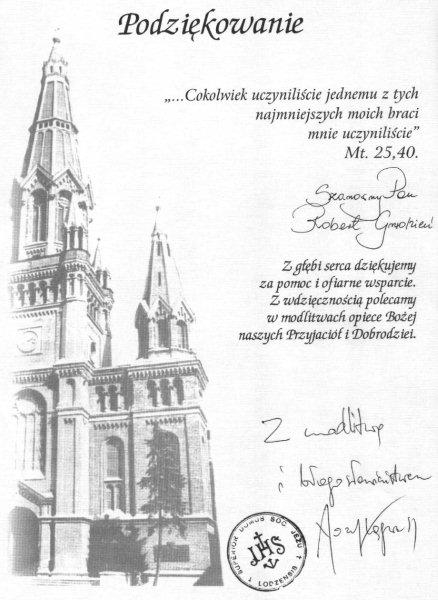 Podziękowanie
„...Cokolwiek uczyniliście jednemu z tych
najmniejszych moich braci
mnie uczyniliście”
Mt. 25,40.
Szanowny Pan
Robert
Z głębi serca dziękujemy
za pomoc i ofiarne wsparcie.
Z wdzięcznością polecamy
w modlitwach opiece Bożej
naszych Przyjaciół i Dobrodziei.
Z modlitwą
i błogosławieństwem
SUPERIOR DOMUS SOC JESU
LODZENSIS
JHS